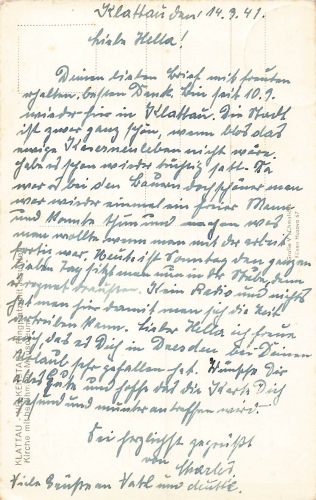 Klattau den 14.9.41.
Liebe Hella!
Deinen lieben Brief mit freuten
erhalten, besten Dank. Bin seit 10.9.
wieder hier in Klattau. Die Stadt
ist zwar ganz schön, wenn blos das
ewige Kasernenleben nicht wäre.
habe es schon wieder tüchtig satt. Da
war es bei den Bauern doch schöner man
war wieder einmal ein freier Mann
und konnte thun und machen was
man wollte wenn man mit der arbeit
fertig war. Heute ist Sonntag den ganzen
Tag sitzt man nun in der Stube, denn
es regnet draußen. Kein Radio und nichts
hat man hier damit man sich die Zeit
vertreiben kann. Lieber Hella ich freue
mich, das es Dir in Dresden bei Deinen
Urlaub sehr gefallen hat. Wünsche Dir
alles Gute und hoffe das die Karte Dich
gesund und munter antreffen wird.
Sei herzlichst gegrüßt
von Charles.
Viele Grüße an Vatl und
KLATTAU
Kirche mit